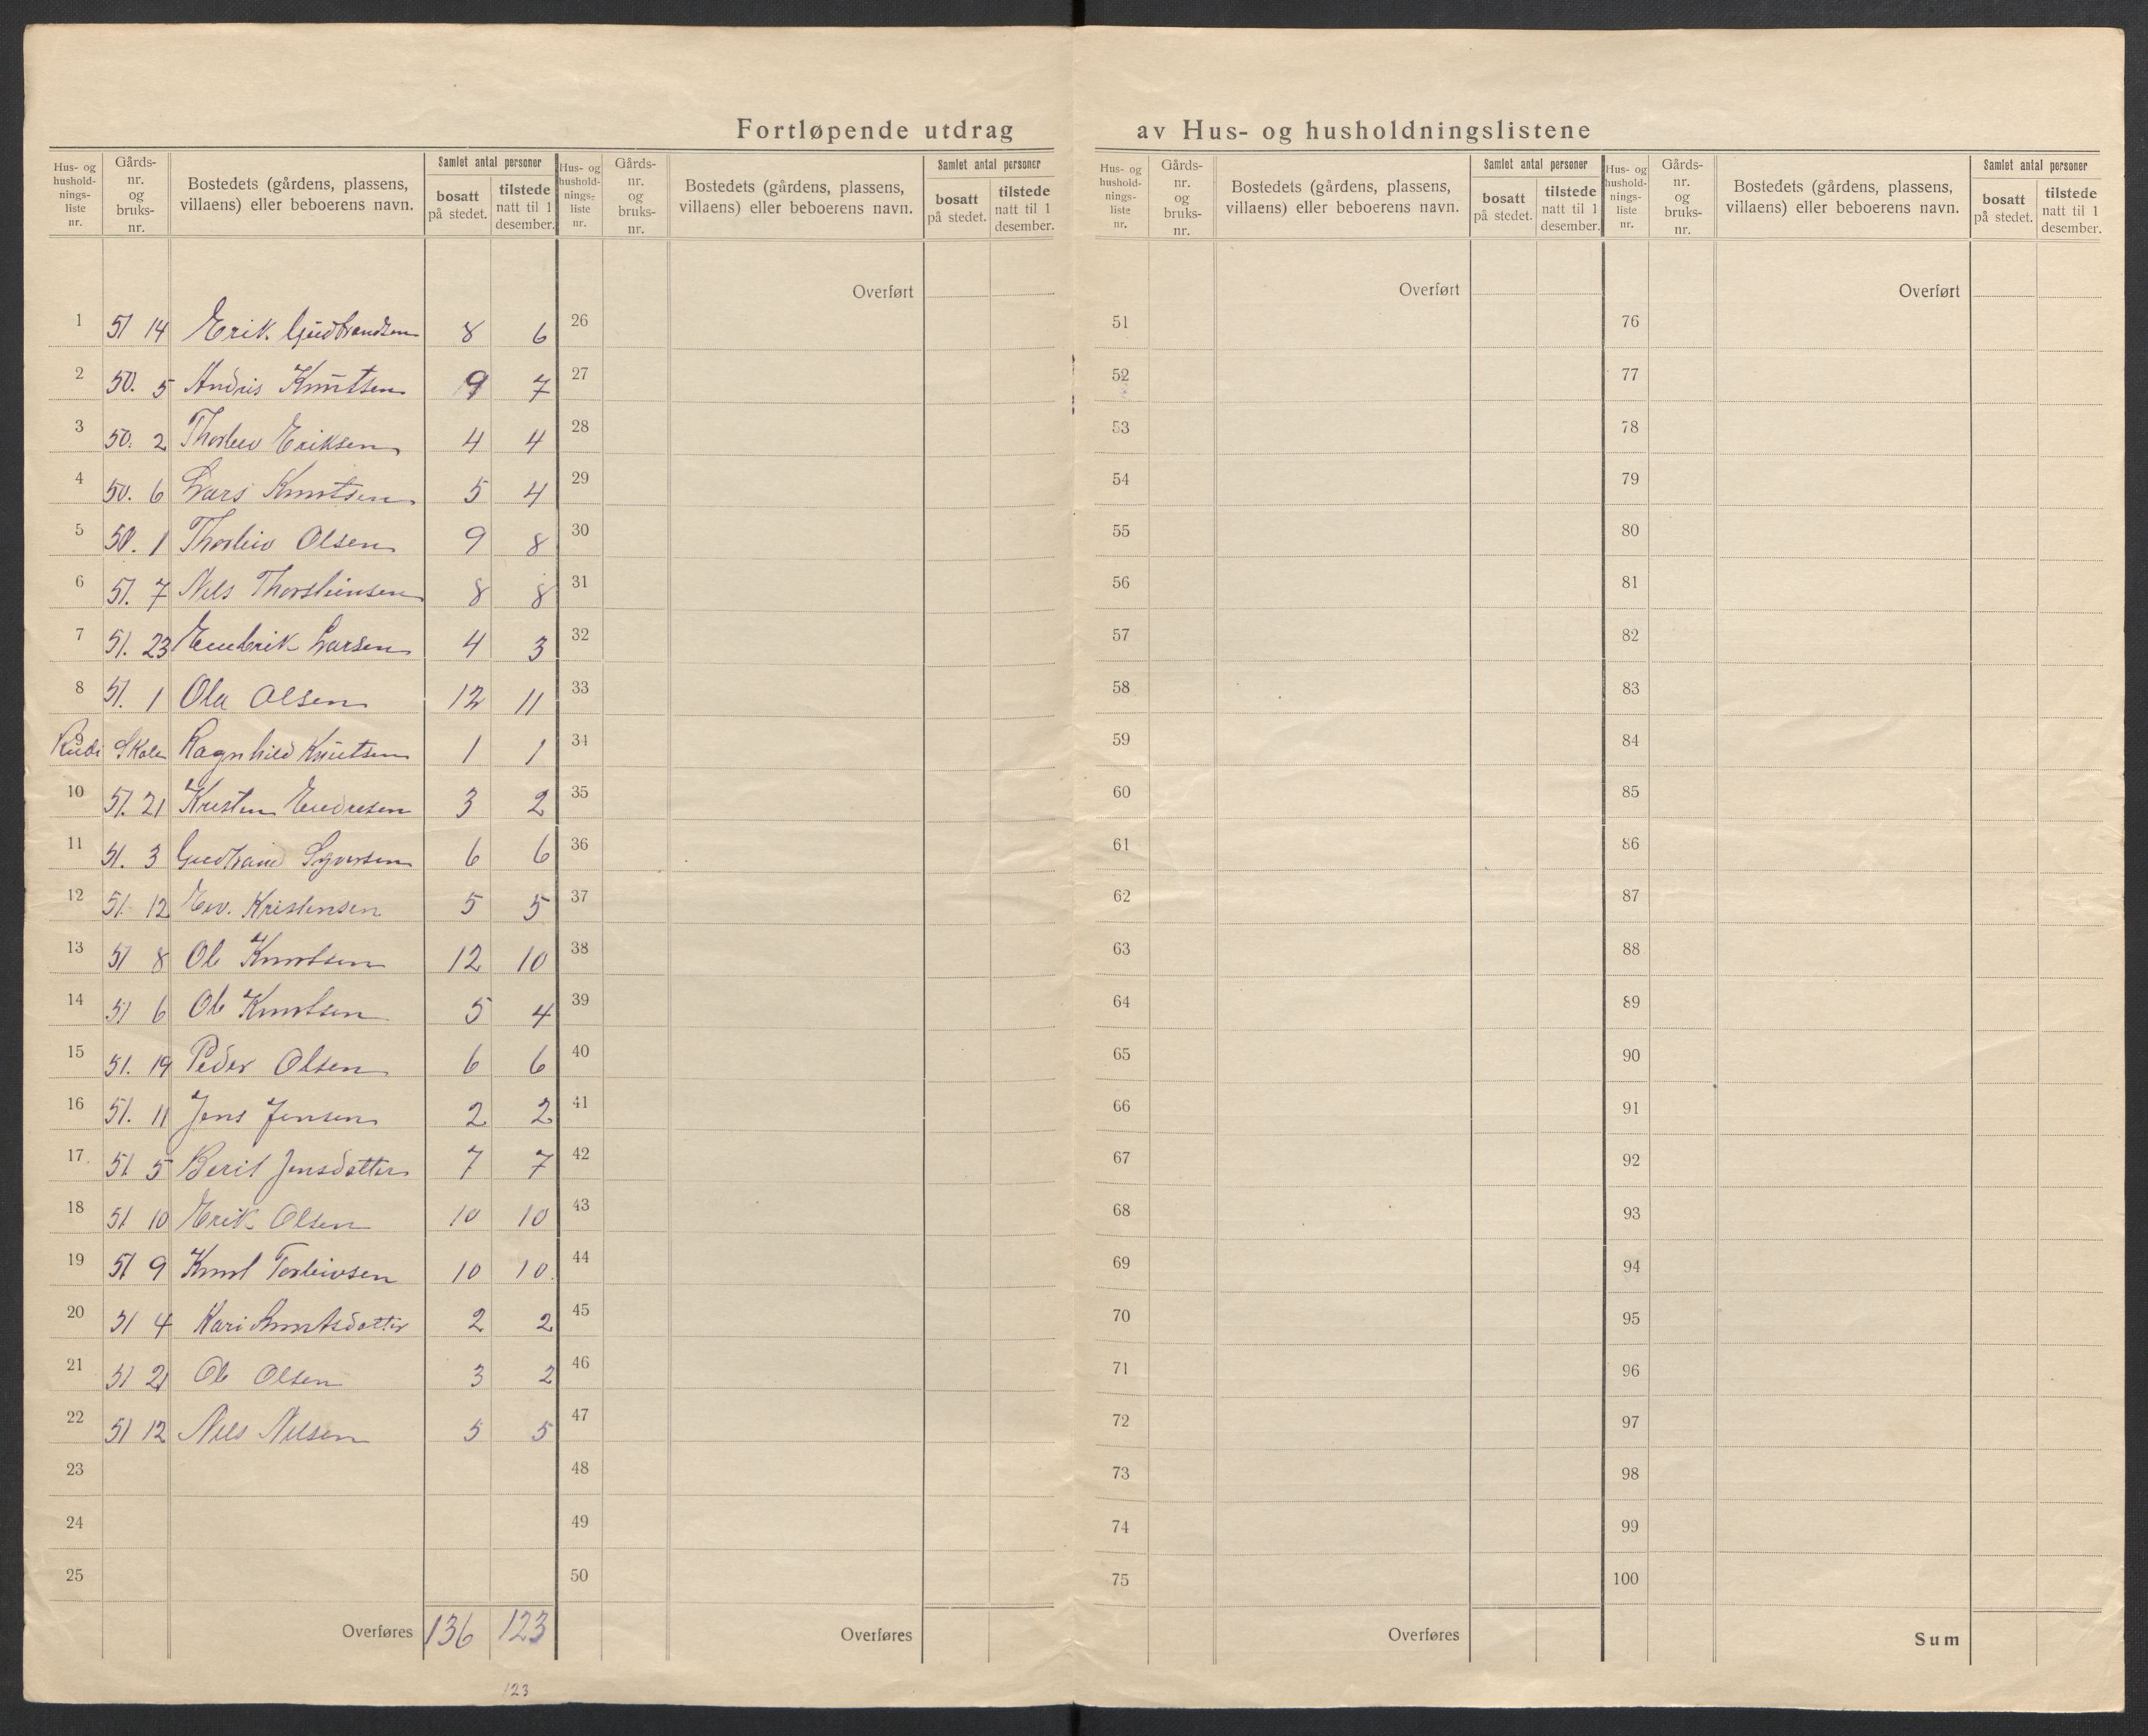 Fortløpende utdrag av Hus- og husholdningslistene
Hus- og hushold-nings-liste nr. Gårds-nr. og bruks-nr. Bostedets (gårdens, plassens, villaens) eller beboerens navn. Samlet antal personer bosatt på stedet. tilstede natt til 1 desember.
Hus- og hushold-nings-liste nr. Gårds-nr. og bruks-nr. Bostedets (gårdens, plassens, villaens) eller beboerens navn. Samlet antal personer bosatt på stedet. tilstede natt til 1 desember.
Hus- og hushold-nings-liste nr. Gårds-nr. og bruks-nr. Bostedets (gårdens, plassens, villaens) eller beboerens navn. Samlet antal personer bosatt på stedet. tilstede natt til 1 desember.
Hus- og hushold-nings-liste nr. Gårds-nr. og bruks-nr. Bostedets (gårdens, plassens, villaens) eller beboerens navn. Samlet antal personer bosatt på stedet. tilstede natt til 1 desember.
Overført Overført Overført
1 51 14 Erik Gudbrandsen 8 6 26 51 76
2 50. 5 Andris Knutsen 9 7 27 52 77
3 50. 2 Thorleiv Eriksen 4 4 28 53 78
4 50. 6 Lars Knutsen 5 4 29 54 79
5 50. 1 Thorleiv Olsen 9 8 30 55 80
6 51. 7 Nils Thorsteinsen 8 8 31 56 81
7 51. 23 Larsen 4 3 32 57 82
8 51. 1 Ola Olsen 12 11 33 58 83
9 Rudi Skole Ragnhild Knutsen 1 1 34 59 84
10 51. 21 Kristen Endresen 3 2 35 60 85
11 51. 3 Gudbrand Syversen 6 6 36 61 86
12 51. 12 Kristensen 5 5 37 62 87
13 51 8 Ole Knutsen 12 10 38 63 88
14 51 6 Ole Knutsen 5 4 39 64 89
15 51. 19 Peder Olsen 6 6 40 65 90
16 51. 11 Jens Jensen 2 2 41 66 91
17 51 5 Berit Jensdatter 7 7 42 67 92
18 51 10 Erik Olsen 10 10 43 68 93
19 51 9 Knut Torleivsen 10 10 44 69 94
20 51 4 Kari Knutsdatter 2 2 45 70 95
21 51 21 Ole Olsen 3 2 46 71 96
22 51 12 Nils Nilsen 5 5 47 72 97
23 48 73 98
24 49 74 99
25 50 75 100
Overføres 136 123 Overføres Overføres Sum
123